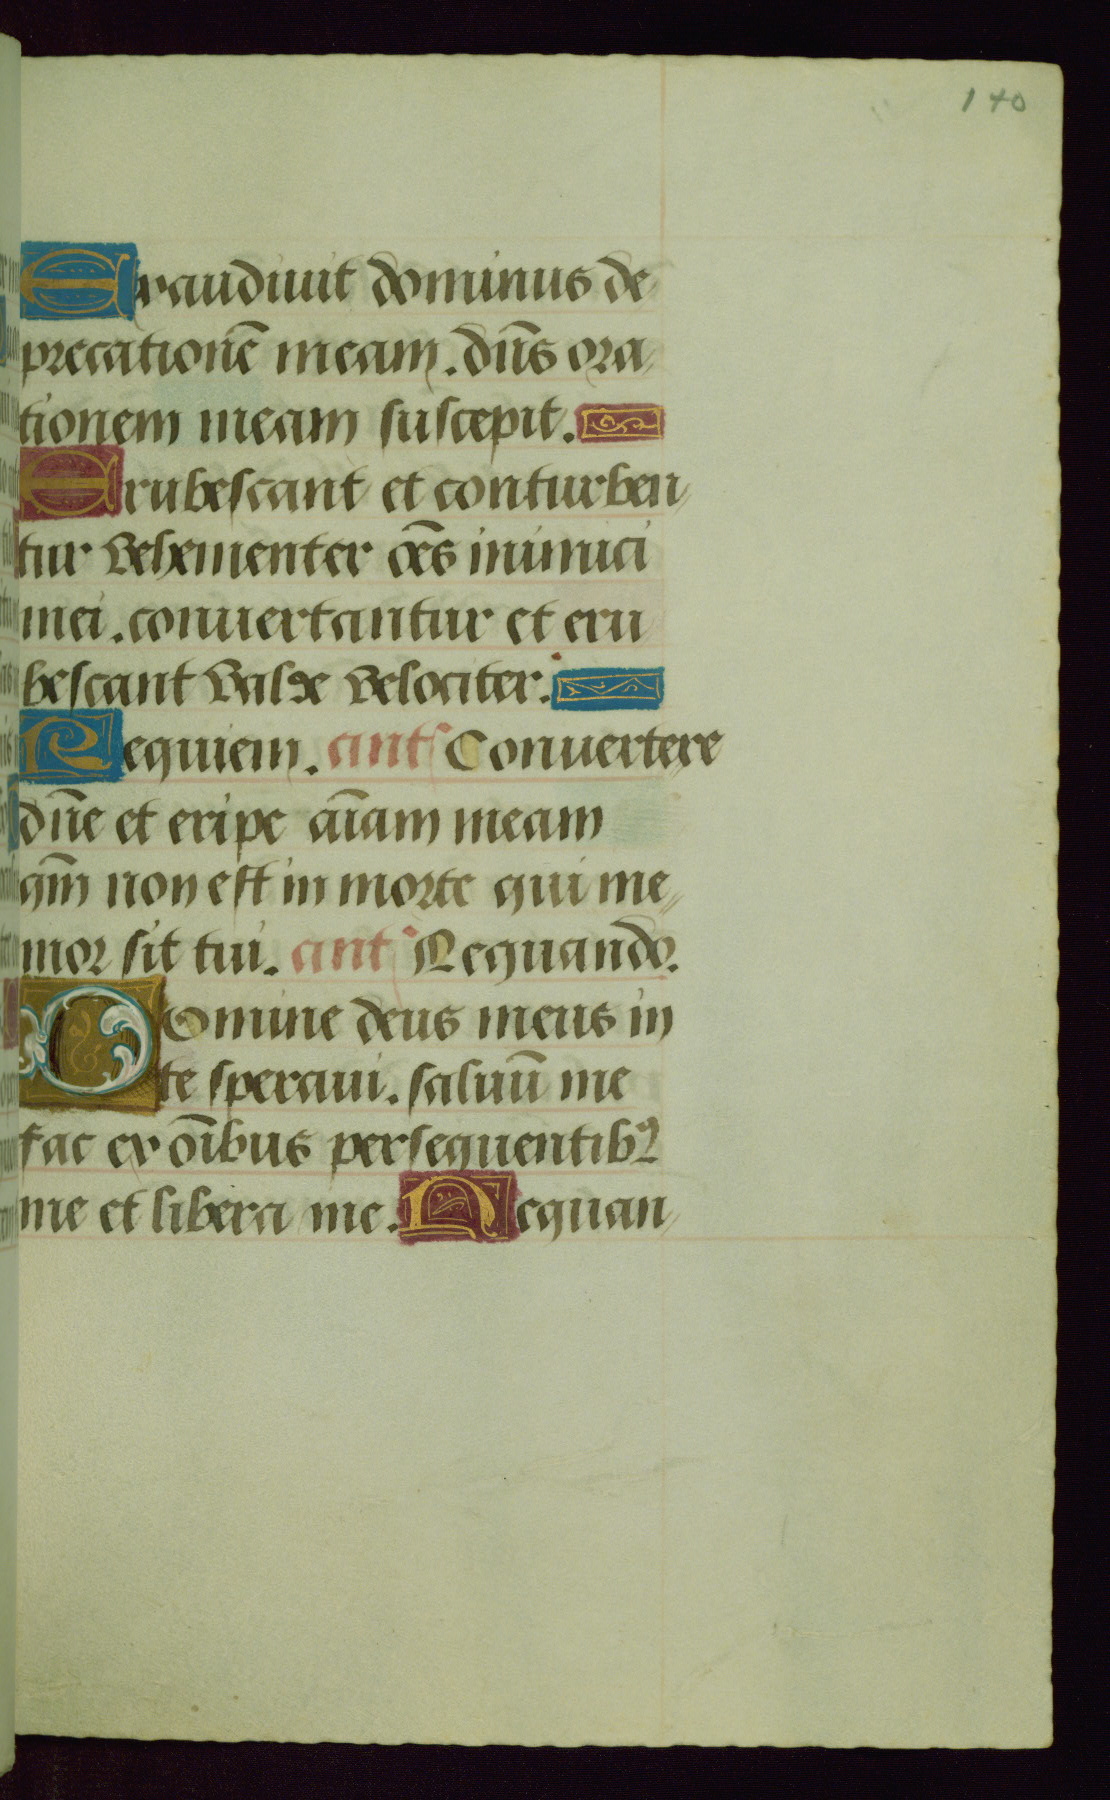 140
Exaudiuit dominus de
precationē meam. dn̄s ora
tionem meam suscepit.
Erubescant et conturben
tur vehementer oēs inimici
mei. conuertantur et eru
bescant valde velociter.
Requiem. ant Conuertere
dn̄e et eripe aīam meam
qm̄ non est in morte qui me
mor sit tui. ant Nequando.
Domine deus meus in
te speraui. saluū me
fac ex oībus persequentibꝰ
me et libera me. Nequan